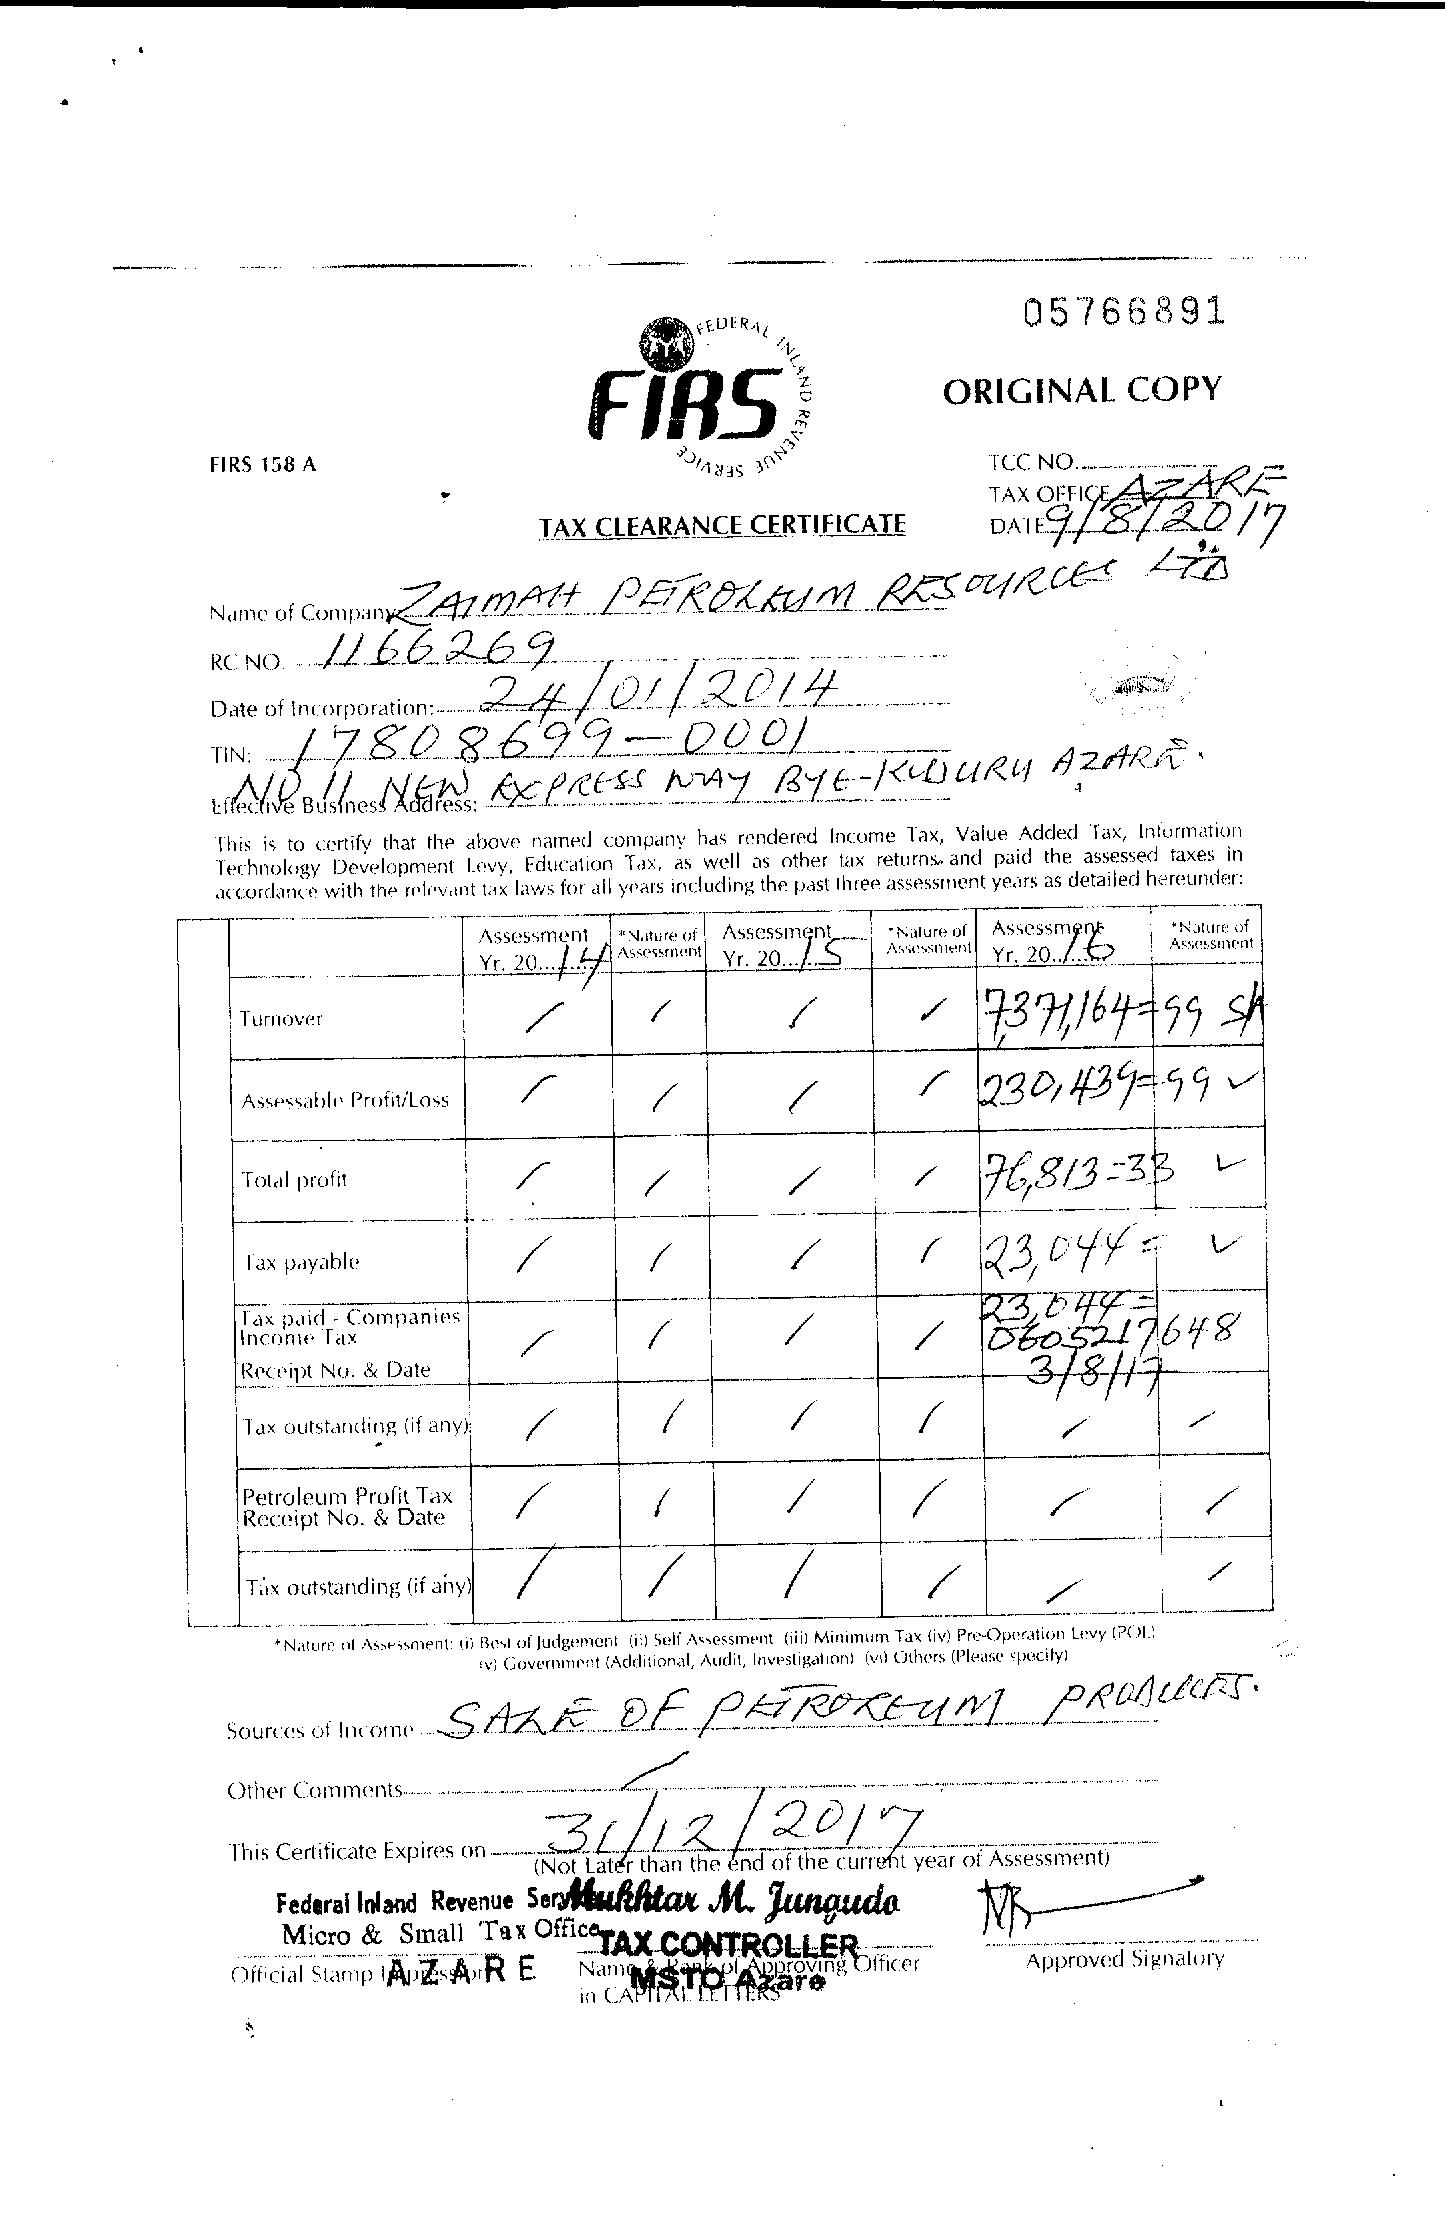 05766891
FEDERAL INLAND REVENUE SERVICE
FIRS
ORIGINAL COPY
FIRS 158 A
TCC NO.
TAX OFFICE AZARE
TAX CLEARANCE CERTIFICATE
DATE 9/8/2017
Name of Company ZAIMAH PETROLEUM RESOURCES LTD
RC NO. 1166269
Date of Incorporation: 24/01/2014
TIN: 17808699-0001
Effective Business Address: NO 11 NEW EXPRESS WAY BYE- AZARE.
This is to certify that the above named company has rendered Income Tax, Value Added Tax, Information
Technology Development Levy, Education Tax, as well as other tax returns, and paid the assessed taxes in
accordance with the relevant tax laws for all years including the past three assessment years as detailed hereunder:
Assessment Yr. 20 14 *Nature of Assessment Assessment Yr. 20 15 *Nature of Assessment Assessment Yr. 20 16 *Nature of Assessment
Turnover / / / / 7,371,164=99 S/A
Assessable Profit/Loss / / / / 230,439=99 ✓
Total profit / / / / 76,813=33 ✓
Tax payable / / / / 23,044= ✓
Tax paid - Companies / / / / 23,044=
Income Tax 0605217648
Receipt No. & Date 3/8/17
Tax outstanding (if any) / / / / / /
Petroleum Profit Tax / / / / / /
Receipt No. & Date
Tax outstanding (if any) / / / / / /
*Nature of Assessment: (i) Best of Judgement (ii) Self Assessment (iii) Minimum Tax (iv) Pre-Operation Levy (POL)
(v) Government (Additional, Audit, Investigation) (vi) Others (Please specify)
Sources of Income SALE OF PETROLEUM PRODUCTS.
Other Comments /
This Certificate Expires on 31/12/2017
(Not Later than the end of the current year of Assessment)
Federal Inland Revenue Serv Mukhtar M. Jungudo
Micro & Small Tax Office TAX CONTROLLER
AZARE MSTO Azare
Official Stamp Impression Name & Rank of Approving Officer Approved Signatory
in CAPITAL LETTERS